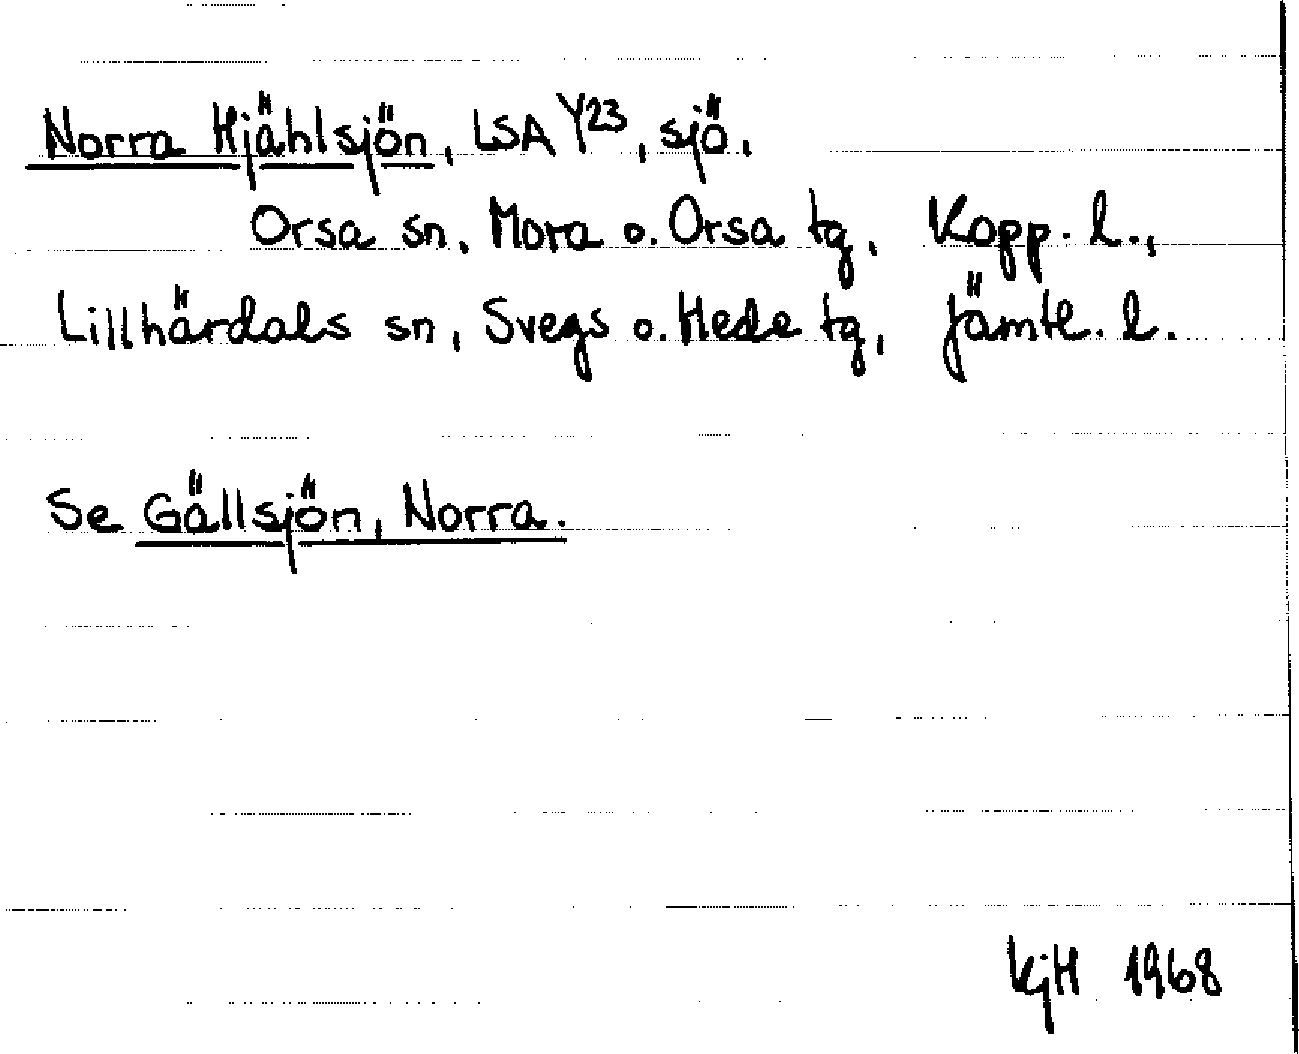 Norra Hjählsjön, LSA Y23, sjö.
Orsa sn, Mora o. Orsa tg, Kopp. l.,
Lillhärdals sn, Svegs o. Hede tg, Jämtl. l.
Se Gällsjön, Norra.
KjH 1968